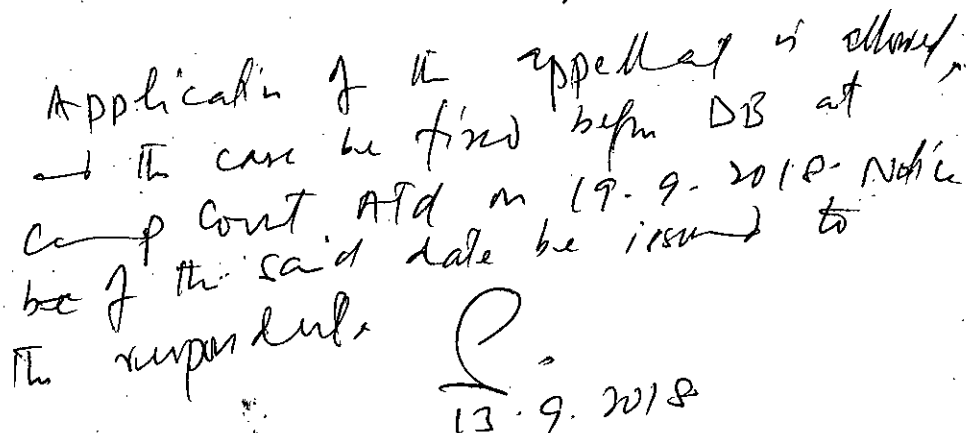 Application of the appellant is allowed,
and the case be fixed before DB at
camp Court ATd on 19.9.2018. Notice
of the said date be issued to
the respondents.
13.9.2018